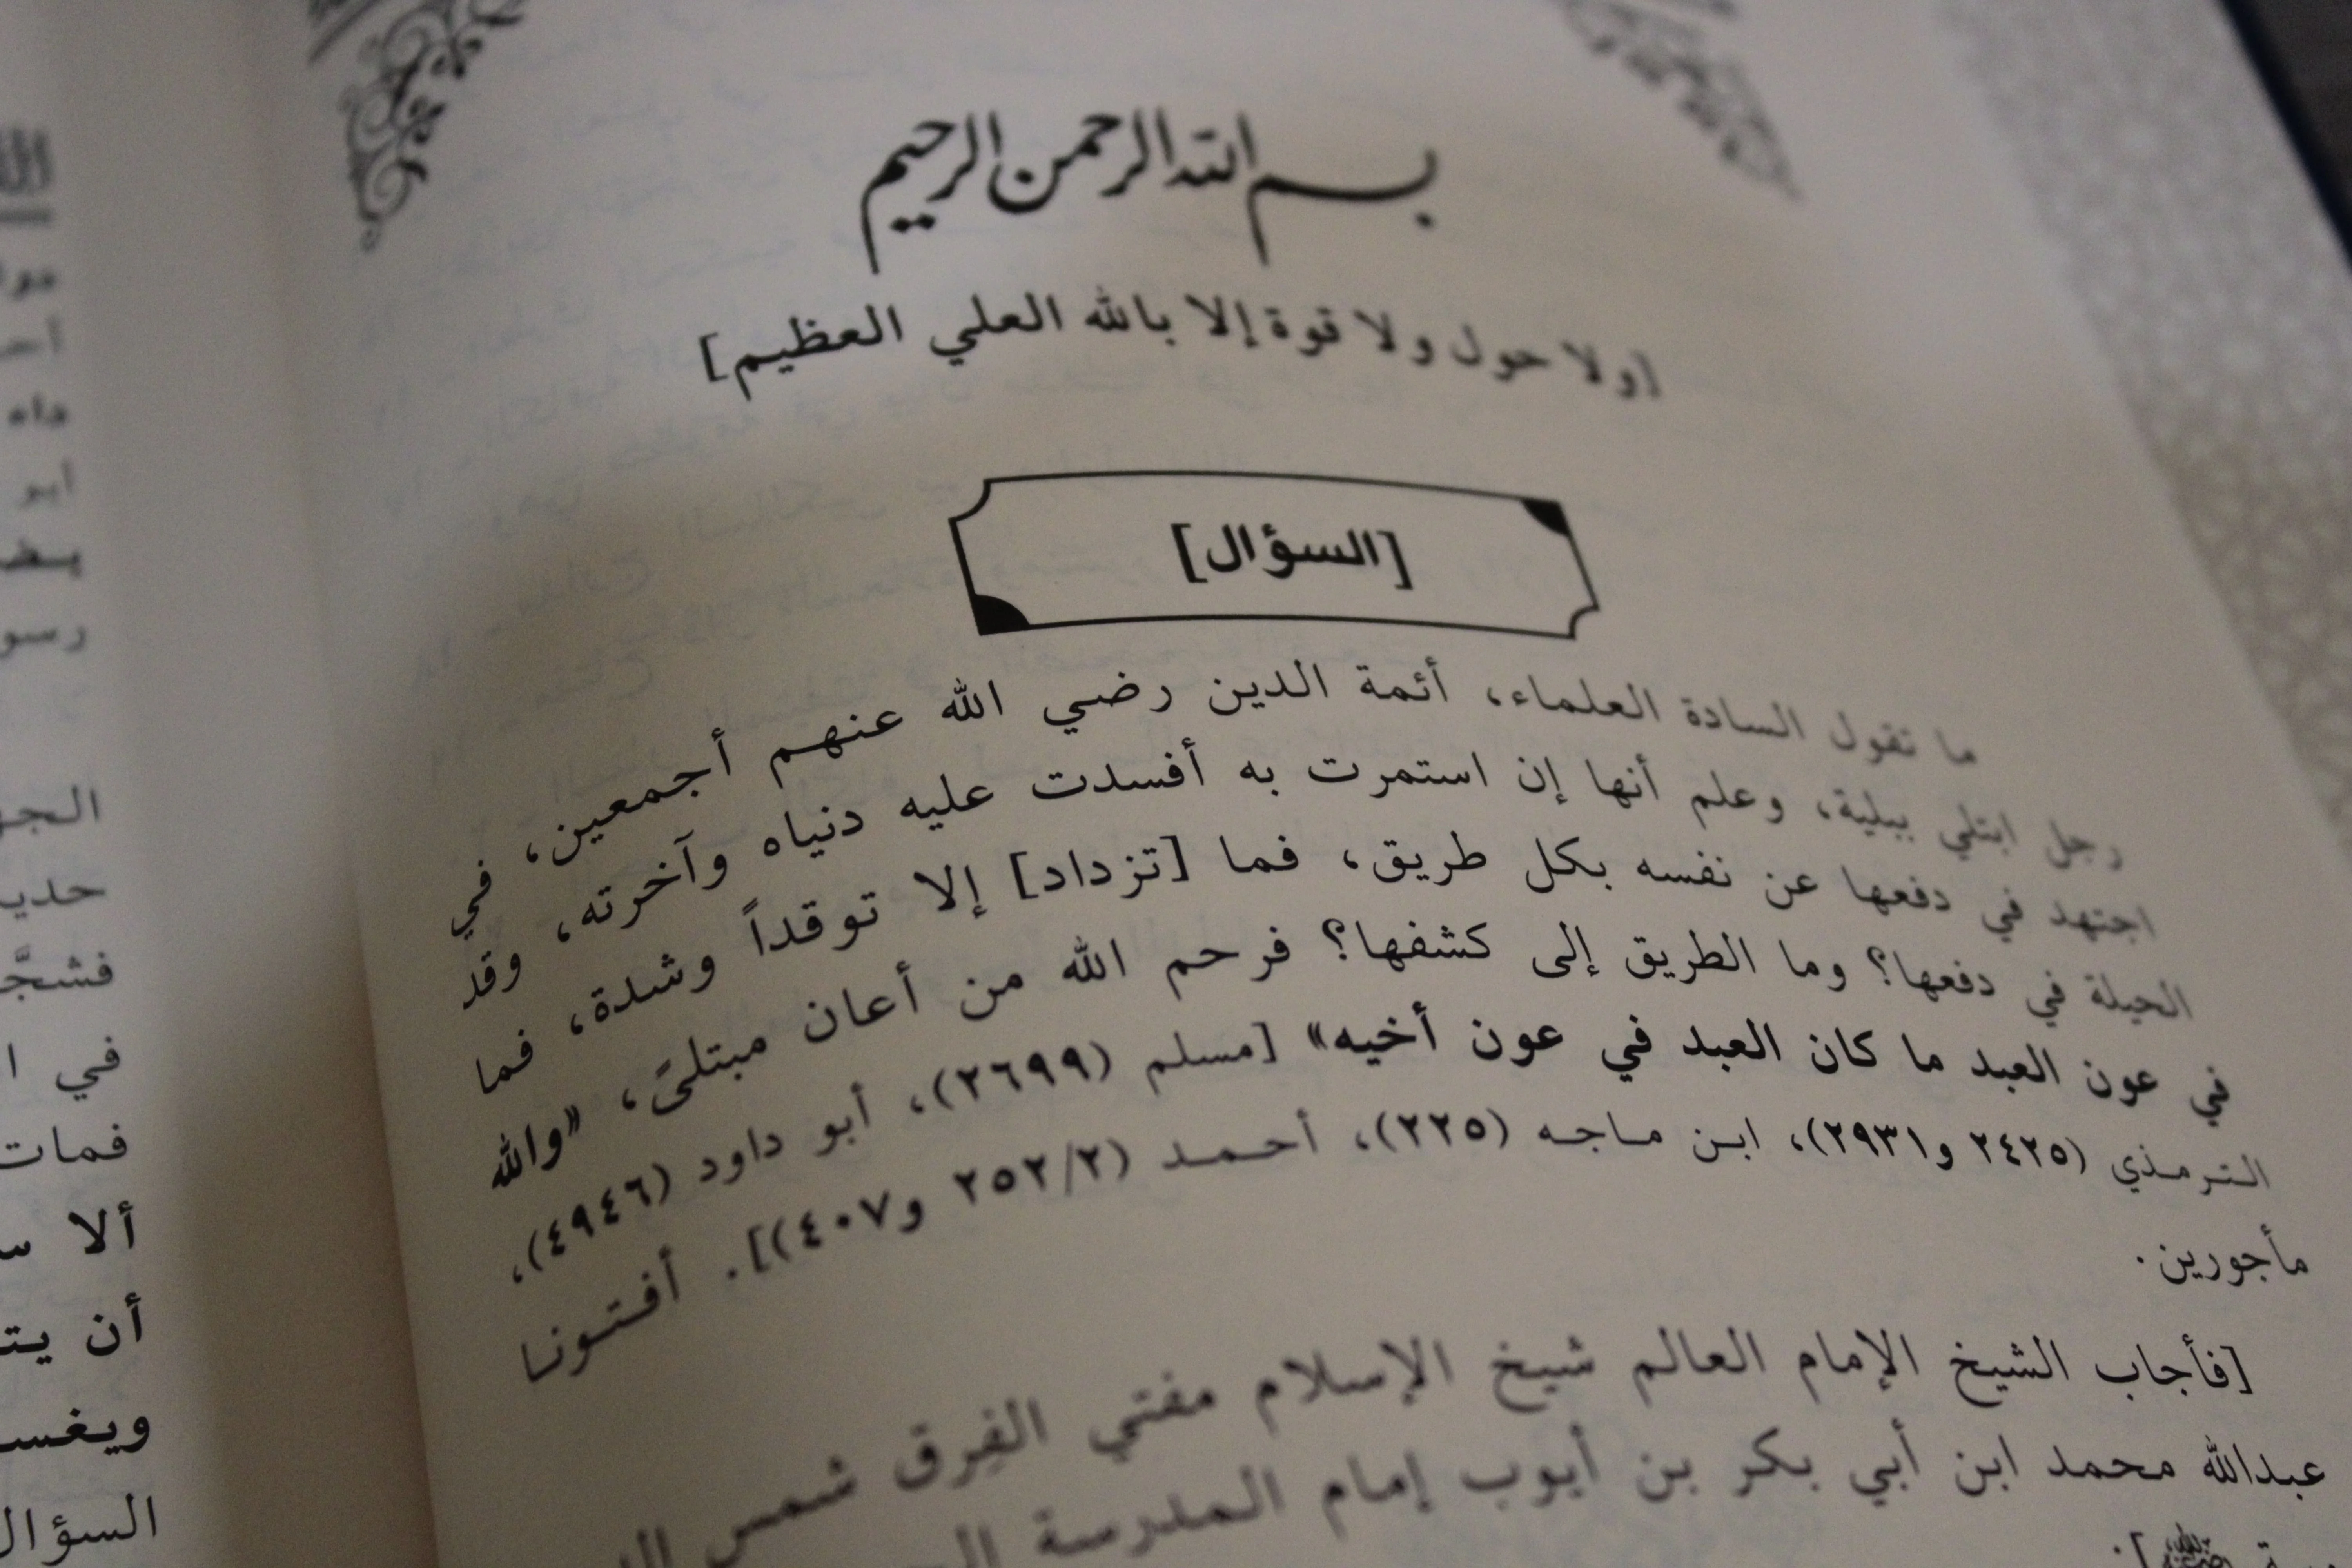 بسم الله الرحمن الرحيم
[ولا حول ولا قوة إلا بالله العلي العظيم]
[السؤال]
ما تقول السادة العلماء، أئمة الدين رضي الله عنهم أجمعين، في
رجل ابتلي ببلية، وعلم أنها إن استمرت به أفسدت عليه دنياه وآخرته، وقد
اجتهد في دفعها عن نفسه بكل طريق، فما [تزداد] إلا توقداً وشدة، فما
الحيلة في دفعها؟ وما الطريق إلى كشفها؟ فرحم الله من أعان مبتلىً، «والله
في عون العبد ما كان العبد في عون أخيه» [مسلم (٢٦٩٩)، أبو داود (٤٩٤٦)،
الترمذي (٢٤٢٥ و٢٩٣١)، ابن ماجه (٢٢٥)، أحمد (٢٥٢/٢ و٤٠٧)]. أفتونا
مأجورين.
[فأجاب الشيخ الإمام العالم شيخ الإسلام مفتي الفِرق شمس
عبدالله محمد ابن أبي بكر بن أيوب إمام المدرسة
رسو
حديـ
فشجَّـ
في ا
فمات
ألا سـ
أن يتـ
ويغسـ
السؤال